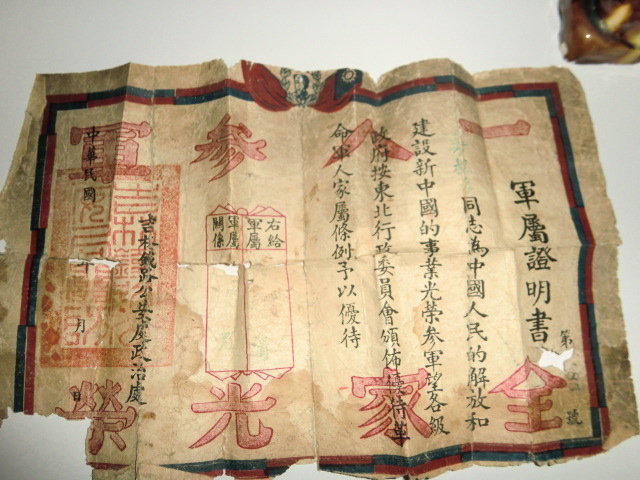 一人參軍
全家光榮
軍屬證明書
第 號
同志為中國人民的解放和
建設新中國的事業光榮參軍望各級
政府按東北行政委員會頒佈優待革
命軍人家屬條例予以優待
右給
軍屬
軍屬
關係
吉林鐵路公安處政治處
中華民國 年 月 日